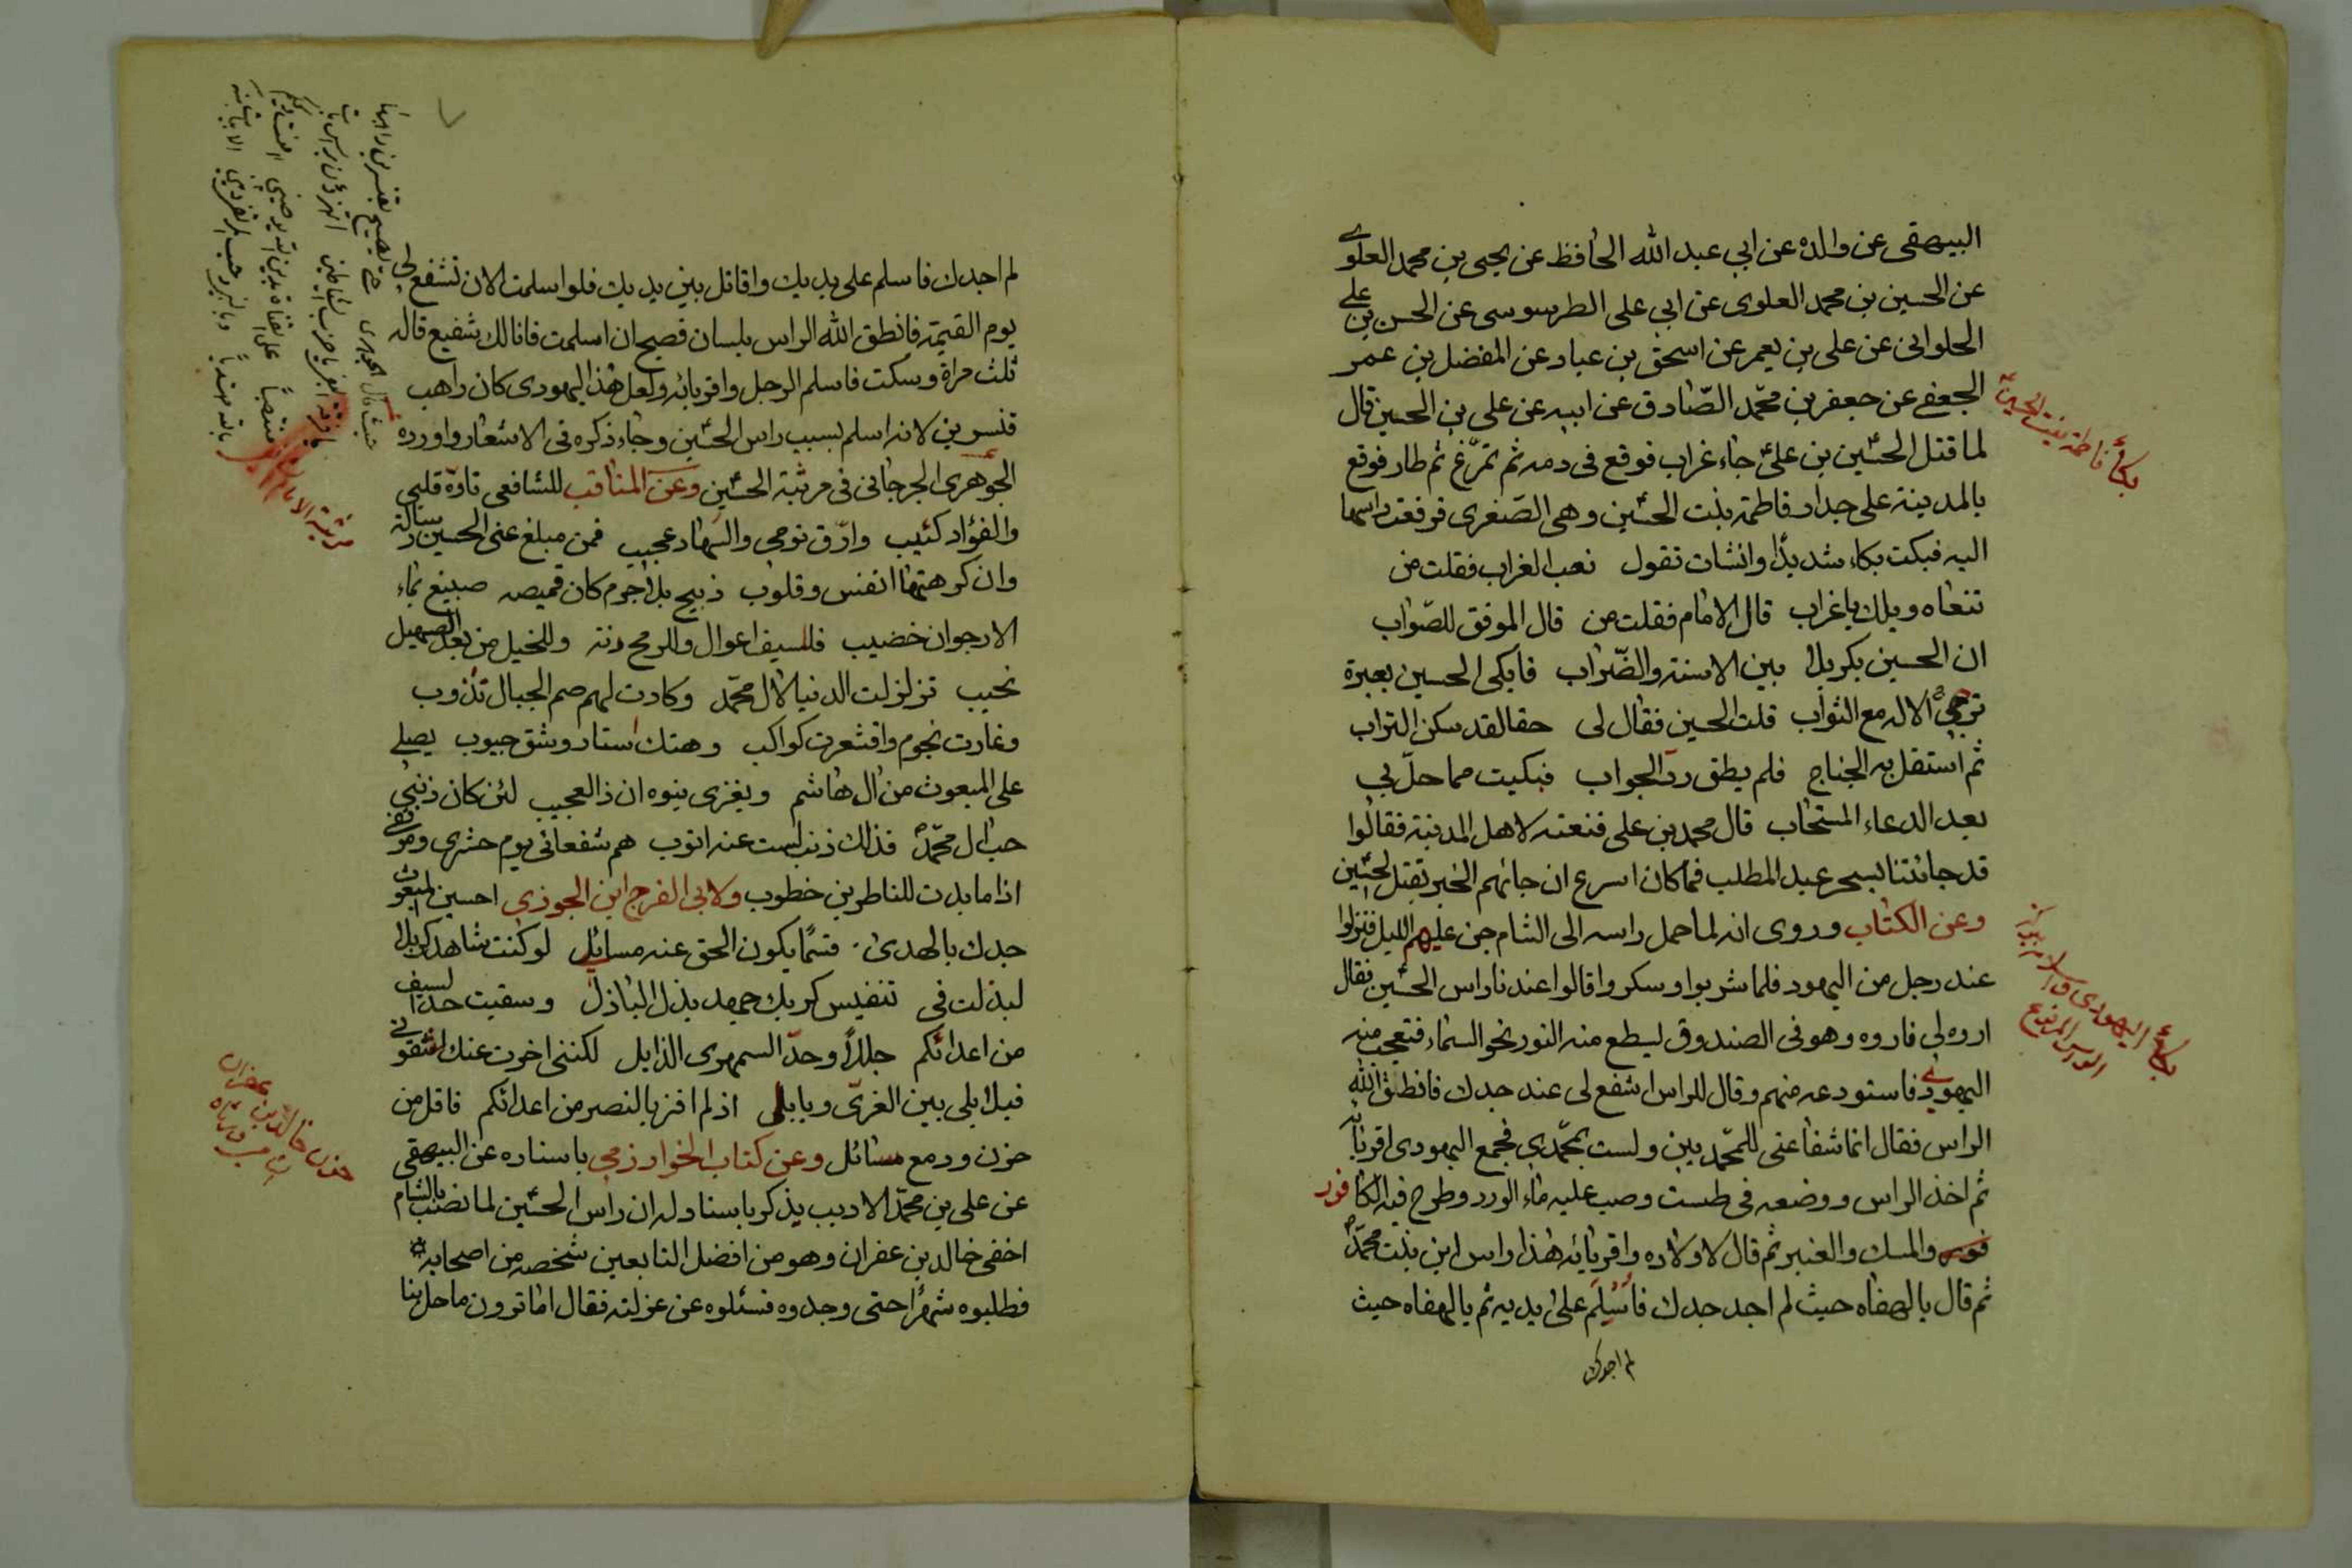 البيهقى عن والده عن ابي عبد الله الحافظ عن يحيى بن محمد العلوى
عن الحسين بن محمد العلوى عن ابي على الطرسوسى عن الحسن بن على
الحلوانى عن على بن يعمر عن اسحق بن عباد عن المفضل بن عمر
الجعفى عن جعفر بن محمّد الصّادق عن ابيه عن على بن الحسين قال
لما قتل الحسين بن على جاء غراب فوقع فى دمه ثم تمرّغ ثم طار فوقع
بالمدينة على جدار فاطمة بنت الحسين وهى الصّغرى فرفعت راسها
اليه فبكت بكاء شديدًا وانشات تقول نعب الغراب فقلت من
تنعاه ويلك يا غراب قال الامام فقلت من قال الموفق للصّواب
ان الحسين بكربلا بين الاسنة والضّراب فابكى الحسين بعبرة
ترجى الاله مع الثواب قلت الحسين فقال لى حقا لقد سكن التراب
ثم استقل به الجناح فلم يطق ردّ الجواب فبكيت مما حلّ بي
بعد الدعاء المستجاب قال محمد بن على فنعته لاهل المدينة فقالوا
قد جائتنا بسحر عبد المطلب فما كان اسرع ان جائهم الخبر بقتل الحسين
وعن الكتاب وروى انه لما حمل راسه الى الشام جن عليهم الليل فنزلوا
عند رجل من اليهود فلما شربوا وسكروا قالوا عندنا راس الحسين فقال
اروه لي فاروه وهو فى الصندوق ليسطع منه النور نحو السماء فتعجب منه
اليهودى فاستودعه منهم وقال للراس اشفع لى عند جدك فانطق الله
الراس فقال انما شفاعتى للمحمّديين ولست بمحمّدي فجمع اليهودى اقربائه
ثم اخذ الراس ووضعه فى طست وصب عليه ماء الورد وطرح فيه الكافور
والمسك والعنبر ثم قال لاولاده واقربائه هذا راس ابن بنت محمّد
ثم قال يا لهفاه حيث لم اجد جدك فأسلم على يديه ثم يا لهفاه حيث
لم اجدك
بكاء فاطمة بنت الحسين
بكاء اليهودى
لم اجدك فاسلم على يديك واقاتل بين يديك فلو اسلمت الان تشفع لى
يوم القيمة فانطق الله الراس بلسان فصيح ان اسلمت فانا لك شفيع قاله
ثلث مراة وسكت فاسلم الرجل واقربائه ولعل هذا اليهودى كان راهب
قنسرين لانه اسلم بسبب راس الحسين وجاء ذكره فى الاشعار واورده
الجوهرى الجرجانى فى مرثية الحسين وعن المناقب للشافعى تاوّه قلبى
والفؤاد كئيب وارّق نومى والسهاد عجيب فمن مبلغ عنى الحسين رسالة
وان كرهتها انفس وقلوب ذبيح بلا جرم كان قميصه صبيغ بماء
الارجوان خضيب فللسيف اعوال وللرمح رنة وللخيل من بعد الصهيل
نحيب تزلزلت الدنيا لال محمّد وكادت لهم صم الجبال تذوب
وغارت نجوم واقشعرت كواكب وهتك استار وشق جيوب يصلى
على المبعوث من ال هاشم ويغزى بنوه ان ذا لعجيب لئن كان ذنبى
حب ال محمّد فذلك ذنب لست عنه اتوب هم شفعائى يوم حشرى وموقفى
اذا ما بدت للناظرين خطوب ولابى الفرج ابن الجوزى احسين المبعوث
جدك بالهدى قسمًا يكون الحق عنه مسايل لو كنت شاهد كربلا
لبذلت فى تنفيس كربك جهد بذل الباذل وسقيت حدّ السيف
من اعدائكم جللاً وحدّ السمهرى الذابل لكننى اخرت عنك لشقوتى
فبلابلى بين الغرىّ وبابلى اذ لم افز بالنصر من اعدائكم فاقل من
حزن ودمع سائل وعن كتاب الخوارزمى باسناده عن البيهقى
عن على بن محمّد الاديب يذكر باسناد له ان راس الحسين لما نصب بالشام
اخفى خالد بن عفران وهو من افضل التابعين شخصه من اصحابه
فطلبوه شهرًا حتى وجدوه فسئلوه عن عزلته فقال اما ترون ما حل بنا